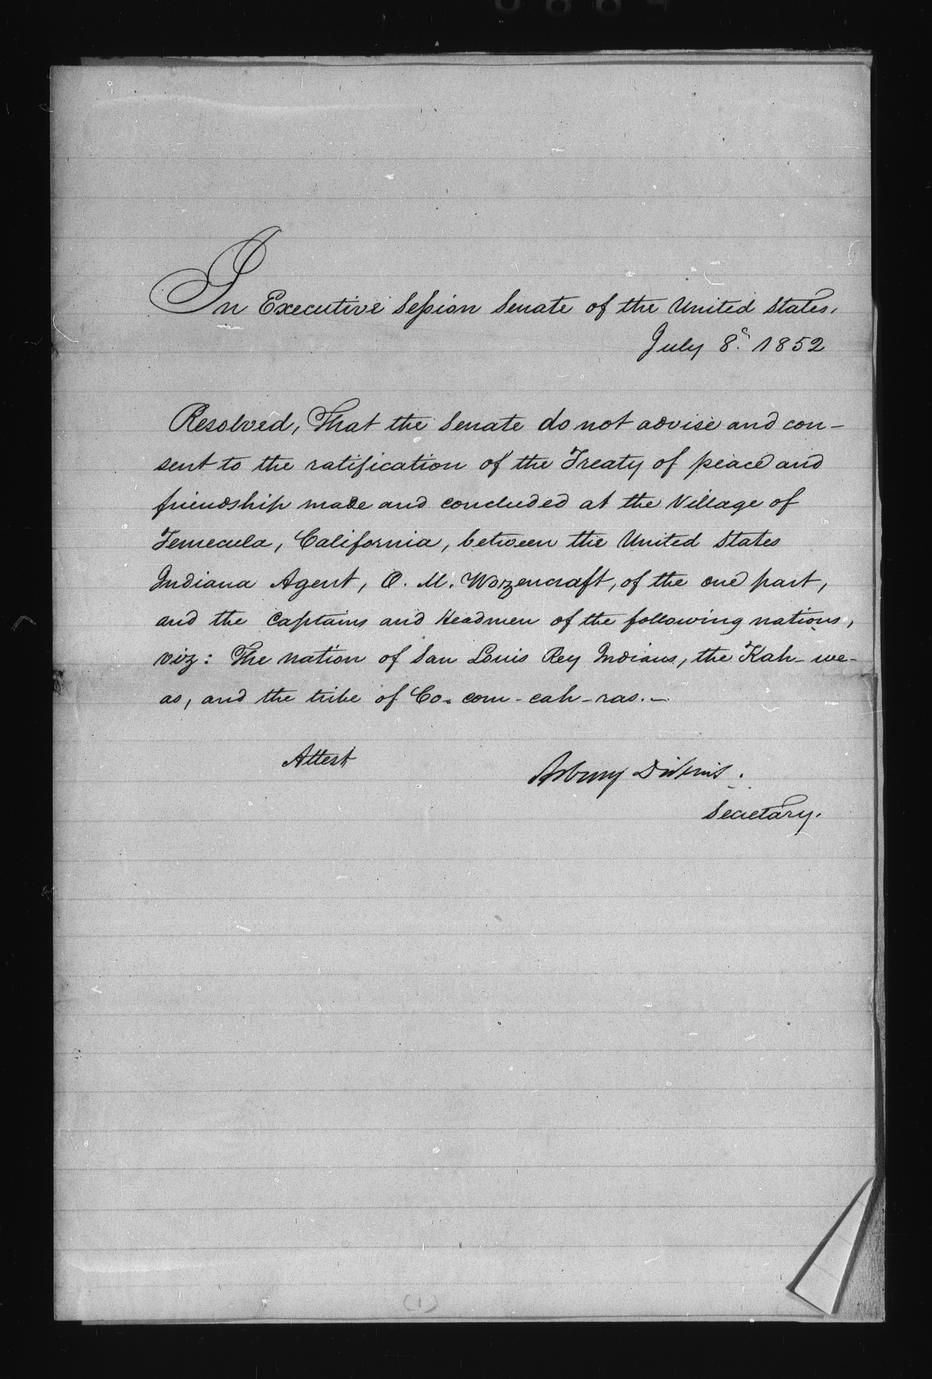 In Executive Session Senate of the United States.
July 8. 1852
Resolved, That the Senate do not advise and con-
sent to the ratification of the Treaty of peace and
friendship made and concluded at the Village of
Temecula, California, between the United States
Indiana Agent, O. M. Wozencraft, of the one part,
and the Captains and Headmen of the following nations,
viz: The nation of San Louis Rey Indians, the Kah-we-
as, and the tribe of Co-com-cah-ras.-
Attest
Asbury Dickins.
Secretary.
(1)